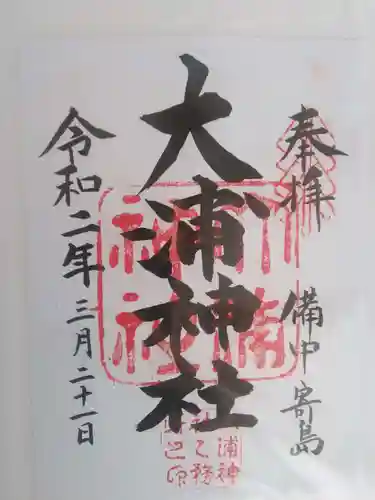 奉拝
備中寄島
大浦神社
令和二年三月二十一日
大浦神社